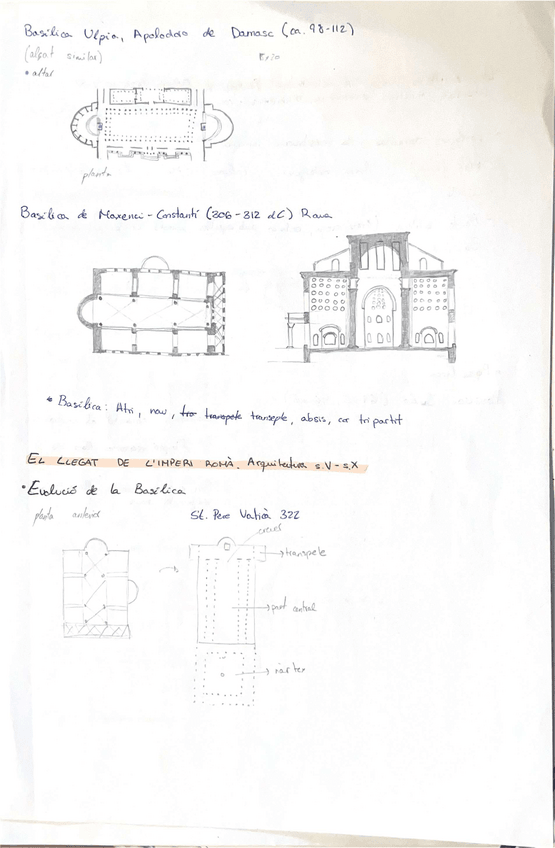 Basílica Ulpia, Apolodoro de Damasc (ca. 98-112)
(alçat similar)
• altar
planta
Basílica de Maxenci - Constantí (306-312 dC) Roma
• Basílica: Atri, nau, tra transpete transepte, absis, cor tripartit
EL LLEGAT DE L'IMPERI ROMÀ. Arquitectura s.V-s.X
• Evolució de la Basílica
planta anterior
St. Pere Vaticà 322
creuer
transpete
part central
nàrtex